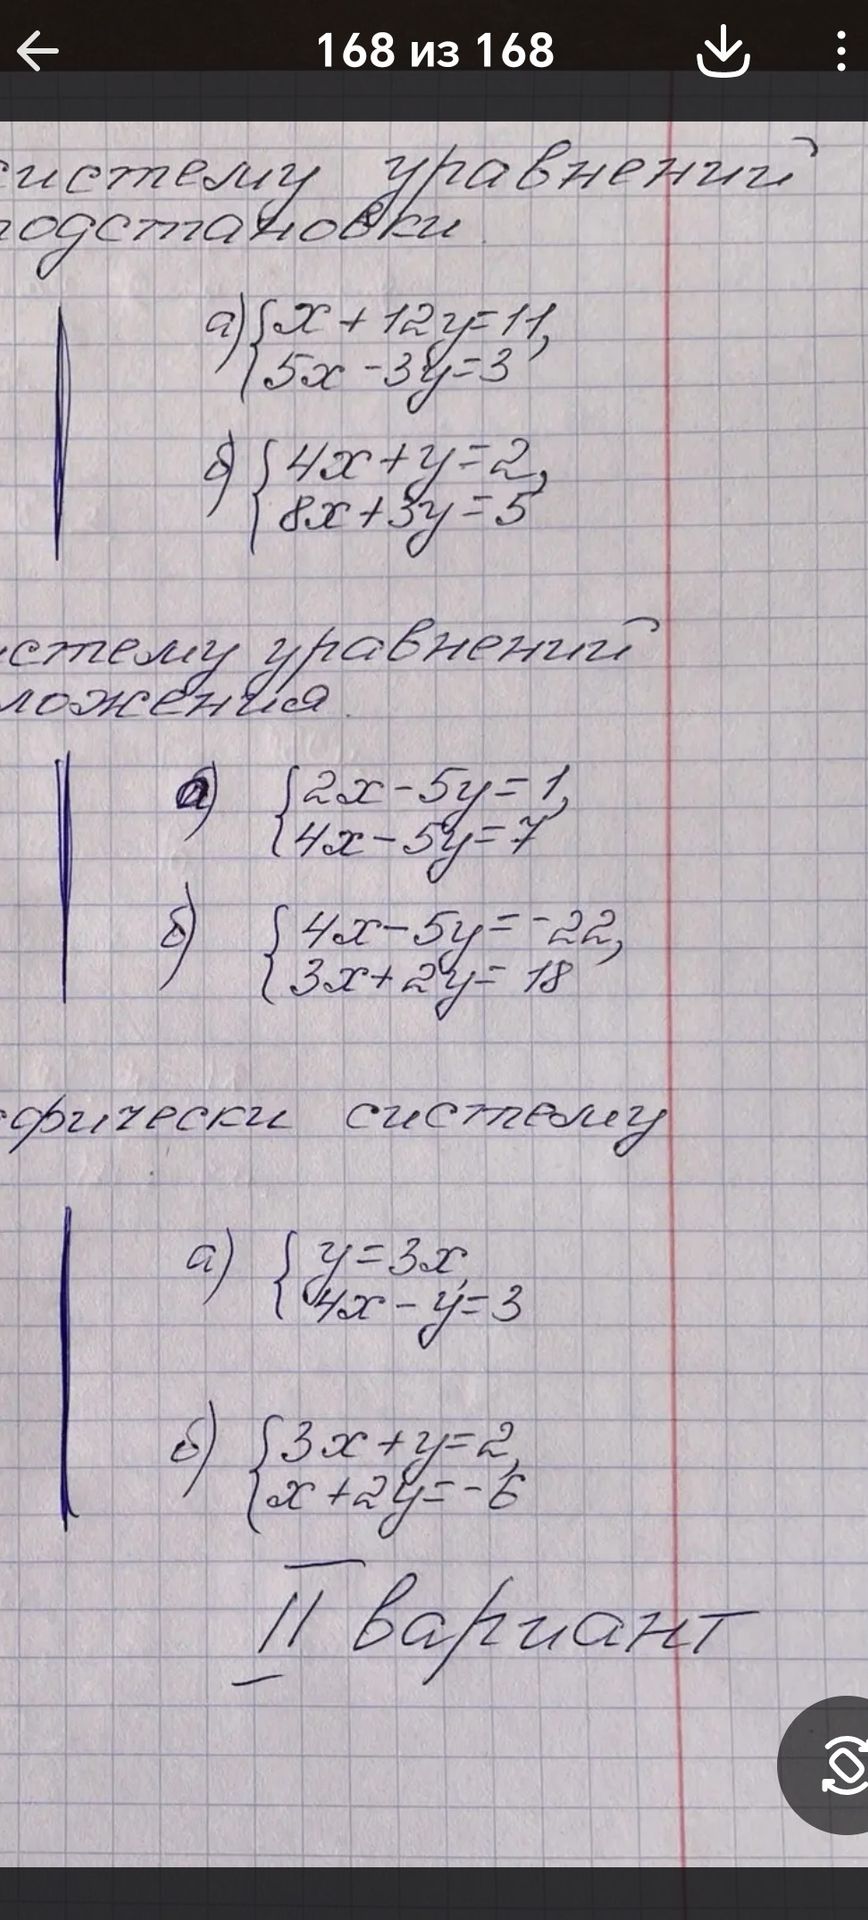 168 из 168
систему уравнений
подстановки
а) { x + 12y = 11,
5x - 3y = 3
б) { 4x + y = 2,
8x + 3y = 5
истему уравнений
ложения.
а) { 2x - 5y = 1,
4x - 5y = 7
б) { 4x - 5y = -22,
3x + 2y = 18
фически систему
а) { y = 3x,
4x - y = 3
б) { 3x + y = 2,
x + 2y = -6
II вариант